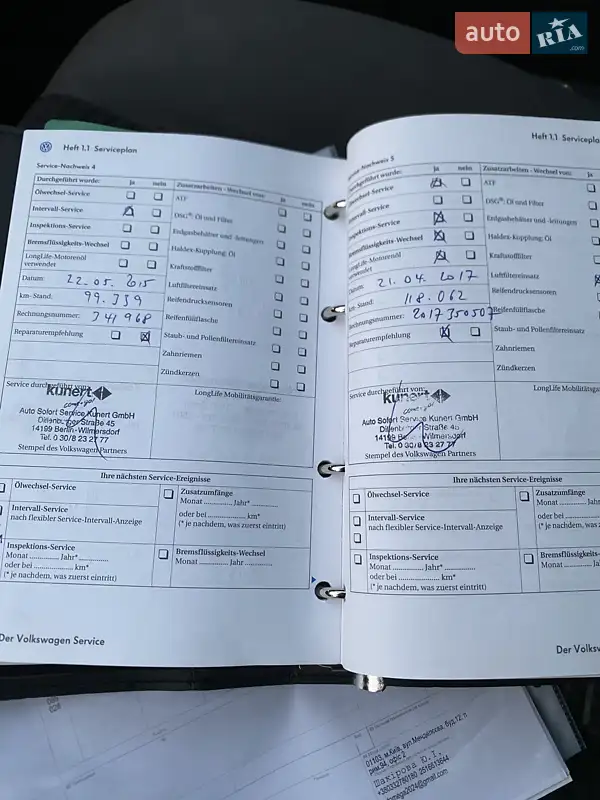 auto RIA.com
Heft 1.1 Serviceplan
Service-Nachweis 4
Durchgeführt wurde: ja nein
Ölwechsel-Service
Intervall-Service
Inspektions-Service
Bremsflüssigkeits-Wechsel
LongLife-Motorenöl
verwendet
Datum: 22.05.2015
km-Stand: 99.339
Rechnungsnummer: 341968
Reparaturempfehlung
Zusatzarbeiten - Wechsel von: ja nein
ATF
DSG®: Öl und Filter
Erdgasbehälter und -leitungen
Haldex-Kupplung: Öl
Kraftstofffilter
Luftfiltereinsatz
Reifendrucksensoren
Reifenfüllflasche
Staub- und Pollenfiltereinsatz
Zahnriemen
Zündkerzen
Service durchgeführt von:
LongLife Mobilitätsgarantie:
kunert
Auto Sofort Service Kunert GmbH
Dillenburger Straße 45
14199 Berlin-Wilmersdorf
Tel. 0 30/8 23 27 77
Stempel des Volkswagen Partners
Ihre nächsten Service-Ereignisse
Ölwechsel-Service
Intervall-Service
nach flexibler Service-Intervall-Anzeige
Inspektions-Service
Monat ............. Jahr* .............
oder bei ............. km*
(* je nachdem, was zuerst eintritt)
Zusatzumfänge
Monat ............. Jahr* .............
oder bei ............. km*
(* je nachdem, was zuerst eintritt)
Bremsflüssigkeits-Wechsel
Monat ............. Jahr .............
Der Volkswagen Service
Heft 1.1 Serviceplan
Service-Nachweis 5
Durchgeführt wurde: ja nein
Ölwechsel-Service
Intervall-Service
Inspektions-Service
Bremsflüssigkeits-Wechsel
LongLife-Motorenöl
verwendet
Datum: 21.04.2017
km-Stand: 118.062
Rechnungsnummer: 2017350507
Reparaturempfehlung
Zusatzarbeiten - Wechsel von: ja
ATF
DSG®: Öl und Filter
Erdgasbehälter und -leitungen
Haldex-Kupplung: Öl
Kraftstofffilter
Luftfiltereinsatz
Reifendrucksensoren
Reifenfüllflasche
Staub- und Pollenfiltereinsatz
Zahnriemen
Zündkerzen
Service durchgeführt von:
LongLife Mobilitätsg
kunert
Auto Sofort Service Kunert GmbH
Dillenburger Straße 45
14199 Berlin-Wilmersdorf
Tel. 0 30/8 23 27 77
Stempel des Volkswagen Partners
Ihre nächsten Service-Ereignisse
Ölwechsel-Service
Intervall-Service
nach flexibler Service-Intervall-Anzeige
Inspektions-Service
Monat ............. Jahr* .............
oder bei ............. km*
(* je nachdem, was zuerst eintritt)
Zusatzumfänge
Monat ............. Jahr
oder bei .............
(* je nachdem, was
Bremsflüssigkeits-
Monat ............. Ja
Der Volksw
01103, м.Київ, вул.Менделєєва, буд.12, п.
рим.94, офіс 2
Шакірова Ю.І.